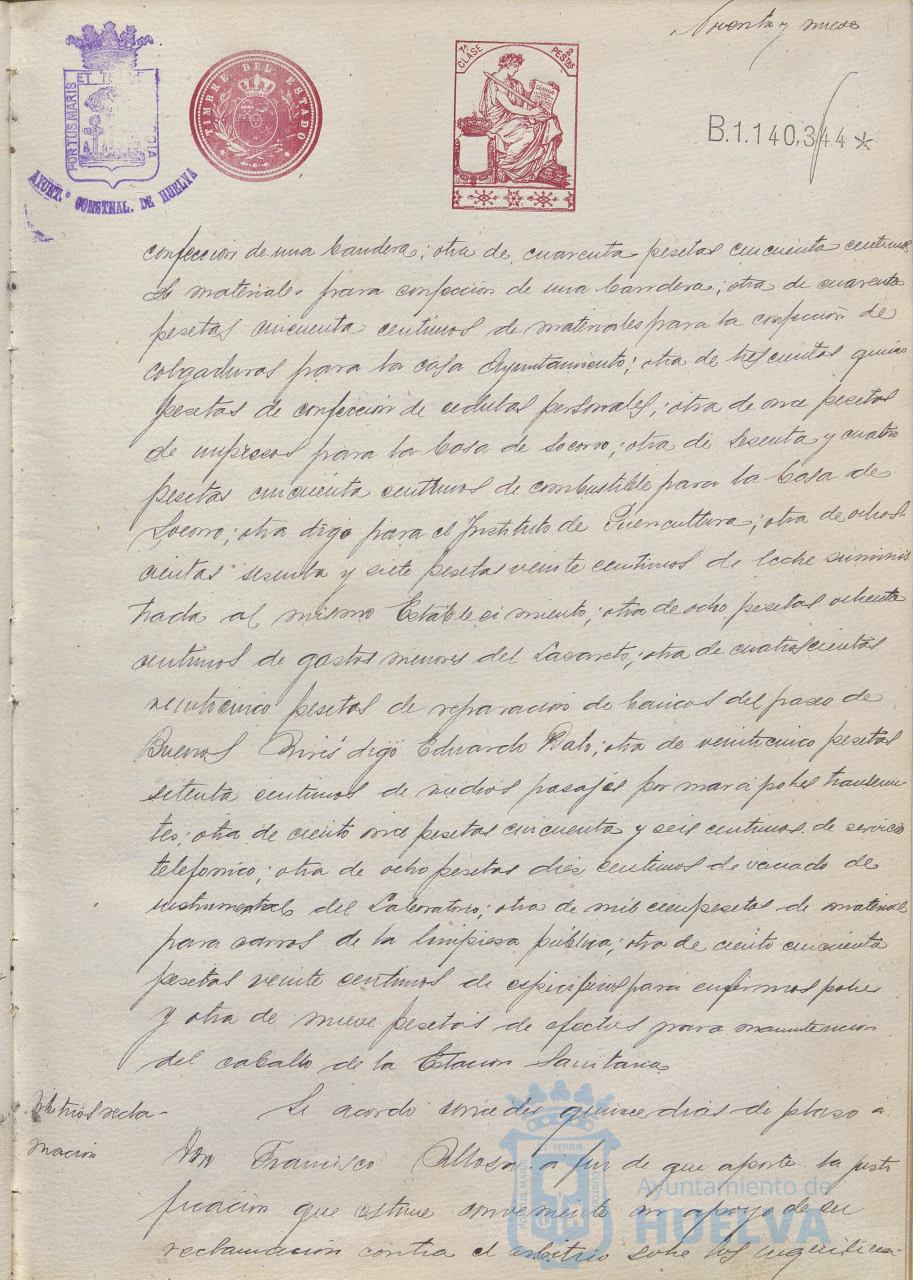 Noventa y nueve
PORTUS MARIS ET TERRAE CUSTODIA
AYUNT.º CONSTNAL. DE HUELVA
TIMBRE DEL ESTADO
7ª CLASE 2 PESTAS
B.1.140,344 *
confección de una bandera; otra de cuarenta pesetas cincuenta centimos
de materiales para confeccion de una bandera; otra de cuarenta
pesetas cincuenta centimos de materiales para la confección de
colgaduras para la casa Ayuntamiento; otra de trescientas quince
pesetas de confección de cedulas personales; otra de once pesetas
de impresos para la Casa de Socorro; otra de sesenta y cuatro
pesetas cincuenta centimos de combustible para la Casa de
Socorro; otra digo para el Instituto de Puericultura; otra de ochos-
cientas sesenta y siete pesetas veinte centimos de leche suminis
trada al mismo Establecimiento; otra de ocho pesetas ochenta
centimos de gastos menores del Lazareto; otra de cuatroscientas
veinticinco pesetas de reparacion de bancos del paseo de
Buenos Aires digo Eduardo Dato; otra de veinticinco pesetas
setenta centimos de medios pasajes por mar a pobres transeun-
tes; otra de ciento once pesetas cincuenta y seis centimos de servicio
telefonico; otra de ocho pesetas diez centimos de vaciado de
instrumental del Laboratorio; otra de mil cien pesetas de material
para carros de la limpiesa pública; otra de ciento cincuenta
pesetas veinte centimos de especificos para enfermos pobres
y otra de nueve pesetas de efectos para manutencion
del caballo de la Estacion Sanitaria
Arbitrios recla-
macion
Se acordó conceder quince dias de plazo a
Don Francisco a fin de que aporte la justi
ficacion que estime conveniente en apoyo de su
reclamación contra el arbitrio sobre los inquilina-
Ayuntamiento de
HUELVA